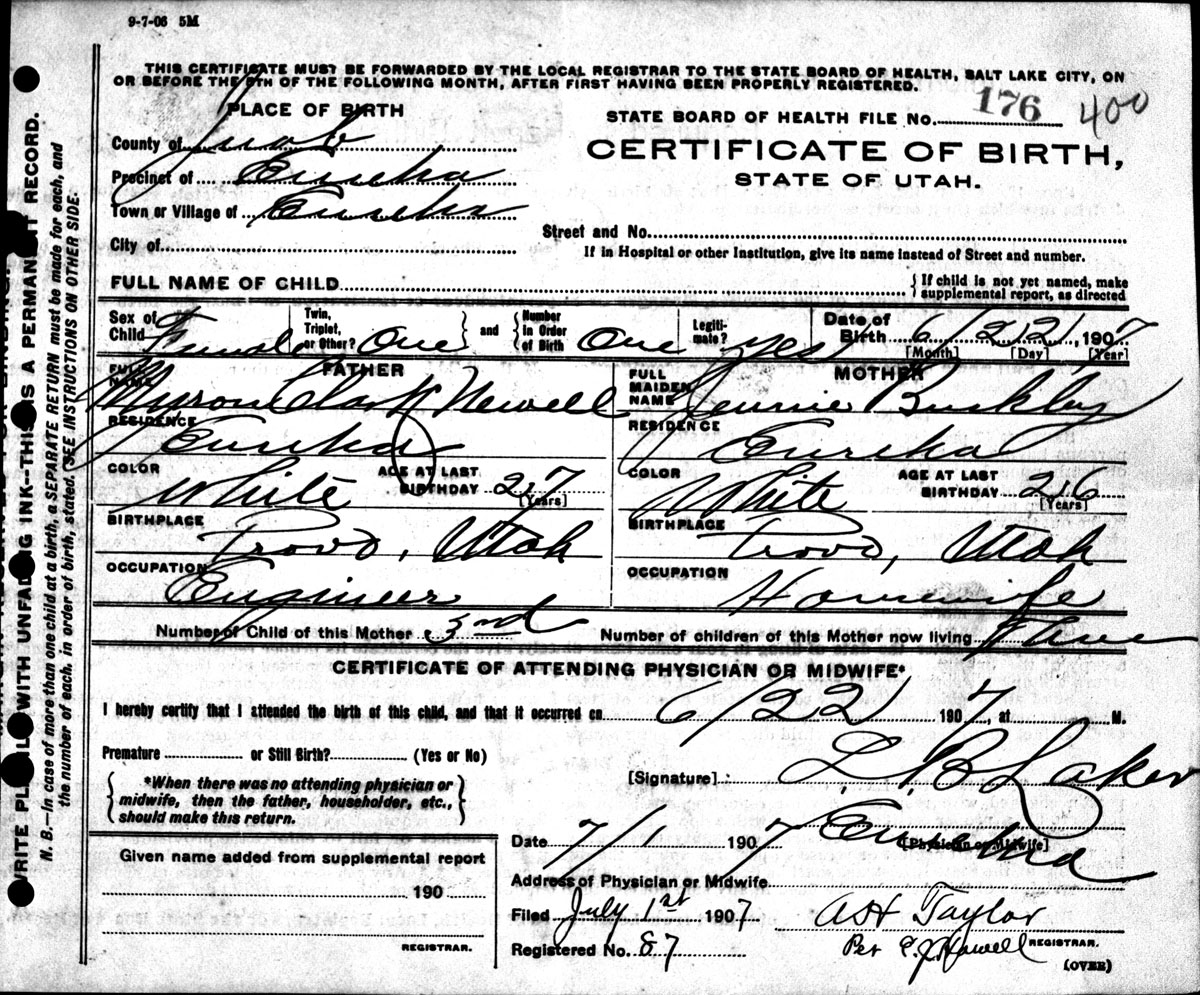 9-7-06 5M
THIS CERTIFICATE MUST BE FORWARDED BY THE LOCAL REGISTRAR TO THE STATE BOARD OF HEALTH, SALT LAKE CITY, ON
OR BEFORE THE 5TH OF THE FOLLOWING MONTH, AFTER FIRST HAVING BEEN PROPERLY REGISTERED.
PLACE OF BIRTH
County of Juab
Precinct of Eureka
Town or Village of Eureka
City of
STATE BOARD OF HEALTH FILE No. 176 400
CERTIFICATE OF BIRTH,
STATE OF UTAH.
Street and No.
If in Hospital or other Institution, give its name instead of Street and number.
FULL NAME OF CHILD { If child is not yet named, make supplemental report, as directed
Sex of Child Female Twin, Triplet, or Other? One } and { Number in Order of Birth One Legiti-mate? yes Date of Birth 6/22/, 1907
[Month] [Day] [Year]
FATHER
FULL NAME Myron Clark Newell
RESIDENCE Eureka
COLOR White AGE AT LAST BIRTHDAY 27 [Years]
BIRTHPLACE Provo, Utah
OCCUPATION Engineer
MOTHER
FULL MAIDEN NAME Jennie Buckley
RESIDENCE Eureka
COLOR White AGE AT LAST BIRTHDAY 26 [Years]
BIRTHPLACE Provo, Utah
OCCUPATION Housewife
Number of Child of this Mother 3rd Number of children of this Mother now living
CERTIFICATE OF ATTENDING PHYSICIAN OR MIDWIFE*
I hereby certify that I attended the birth of this child, and that it occurred on 6/22/ 1907, at M.
Premature or Still Birth? (Yes or No)
{ *When there was no attending physician or
midwife, then the father, householder, etc.,
should make this return. }
[Signature] L. B. Laker
[Physician or Midwife]
Date 7/1 1907 Eureka
Address of Physician or Midwife
Given name added from supplemental report
190
REGISTRAR.
Filed July 1st 1907 AH Taylor
Registered No. 87 Per REGISTRAR.
(OVER)
WRITE PLAINLY WITH UNFADING INK--THIS IS A PERMANENT RECORD.
N. B.—In case of more than one child at a birth, a SEPARATE RETURN must be made for each, and
the number of each, in order of birth, stated. (SEE INSTRUCTIONS ON OTHER SIDE.